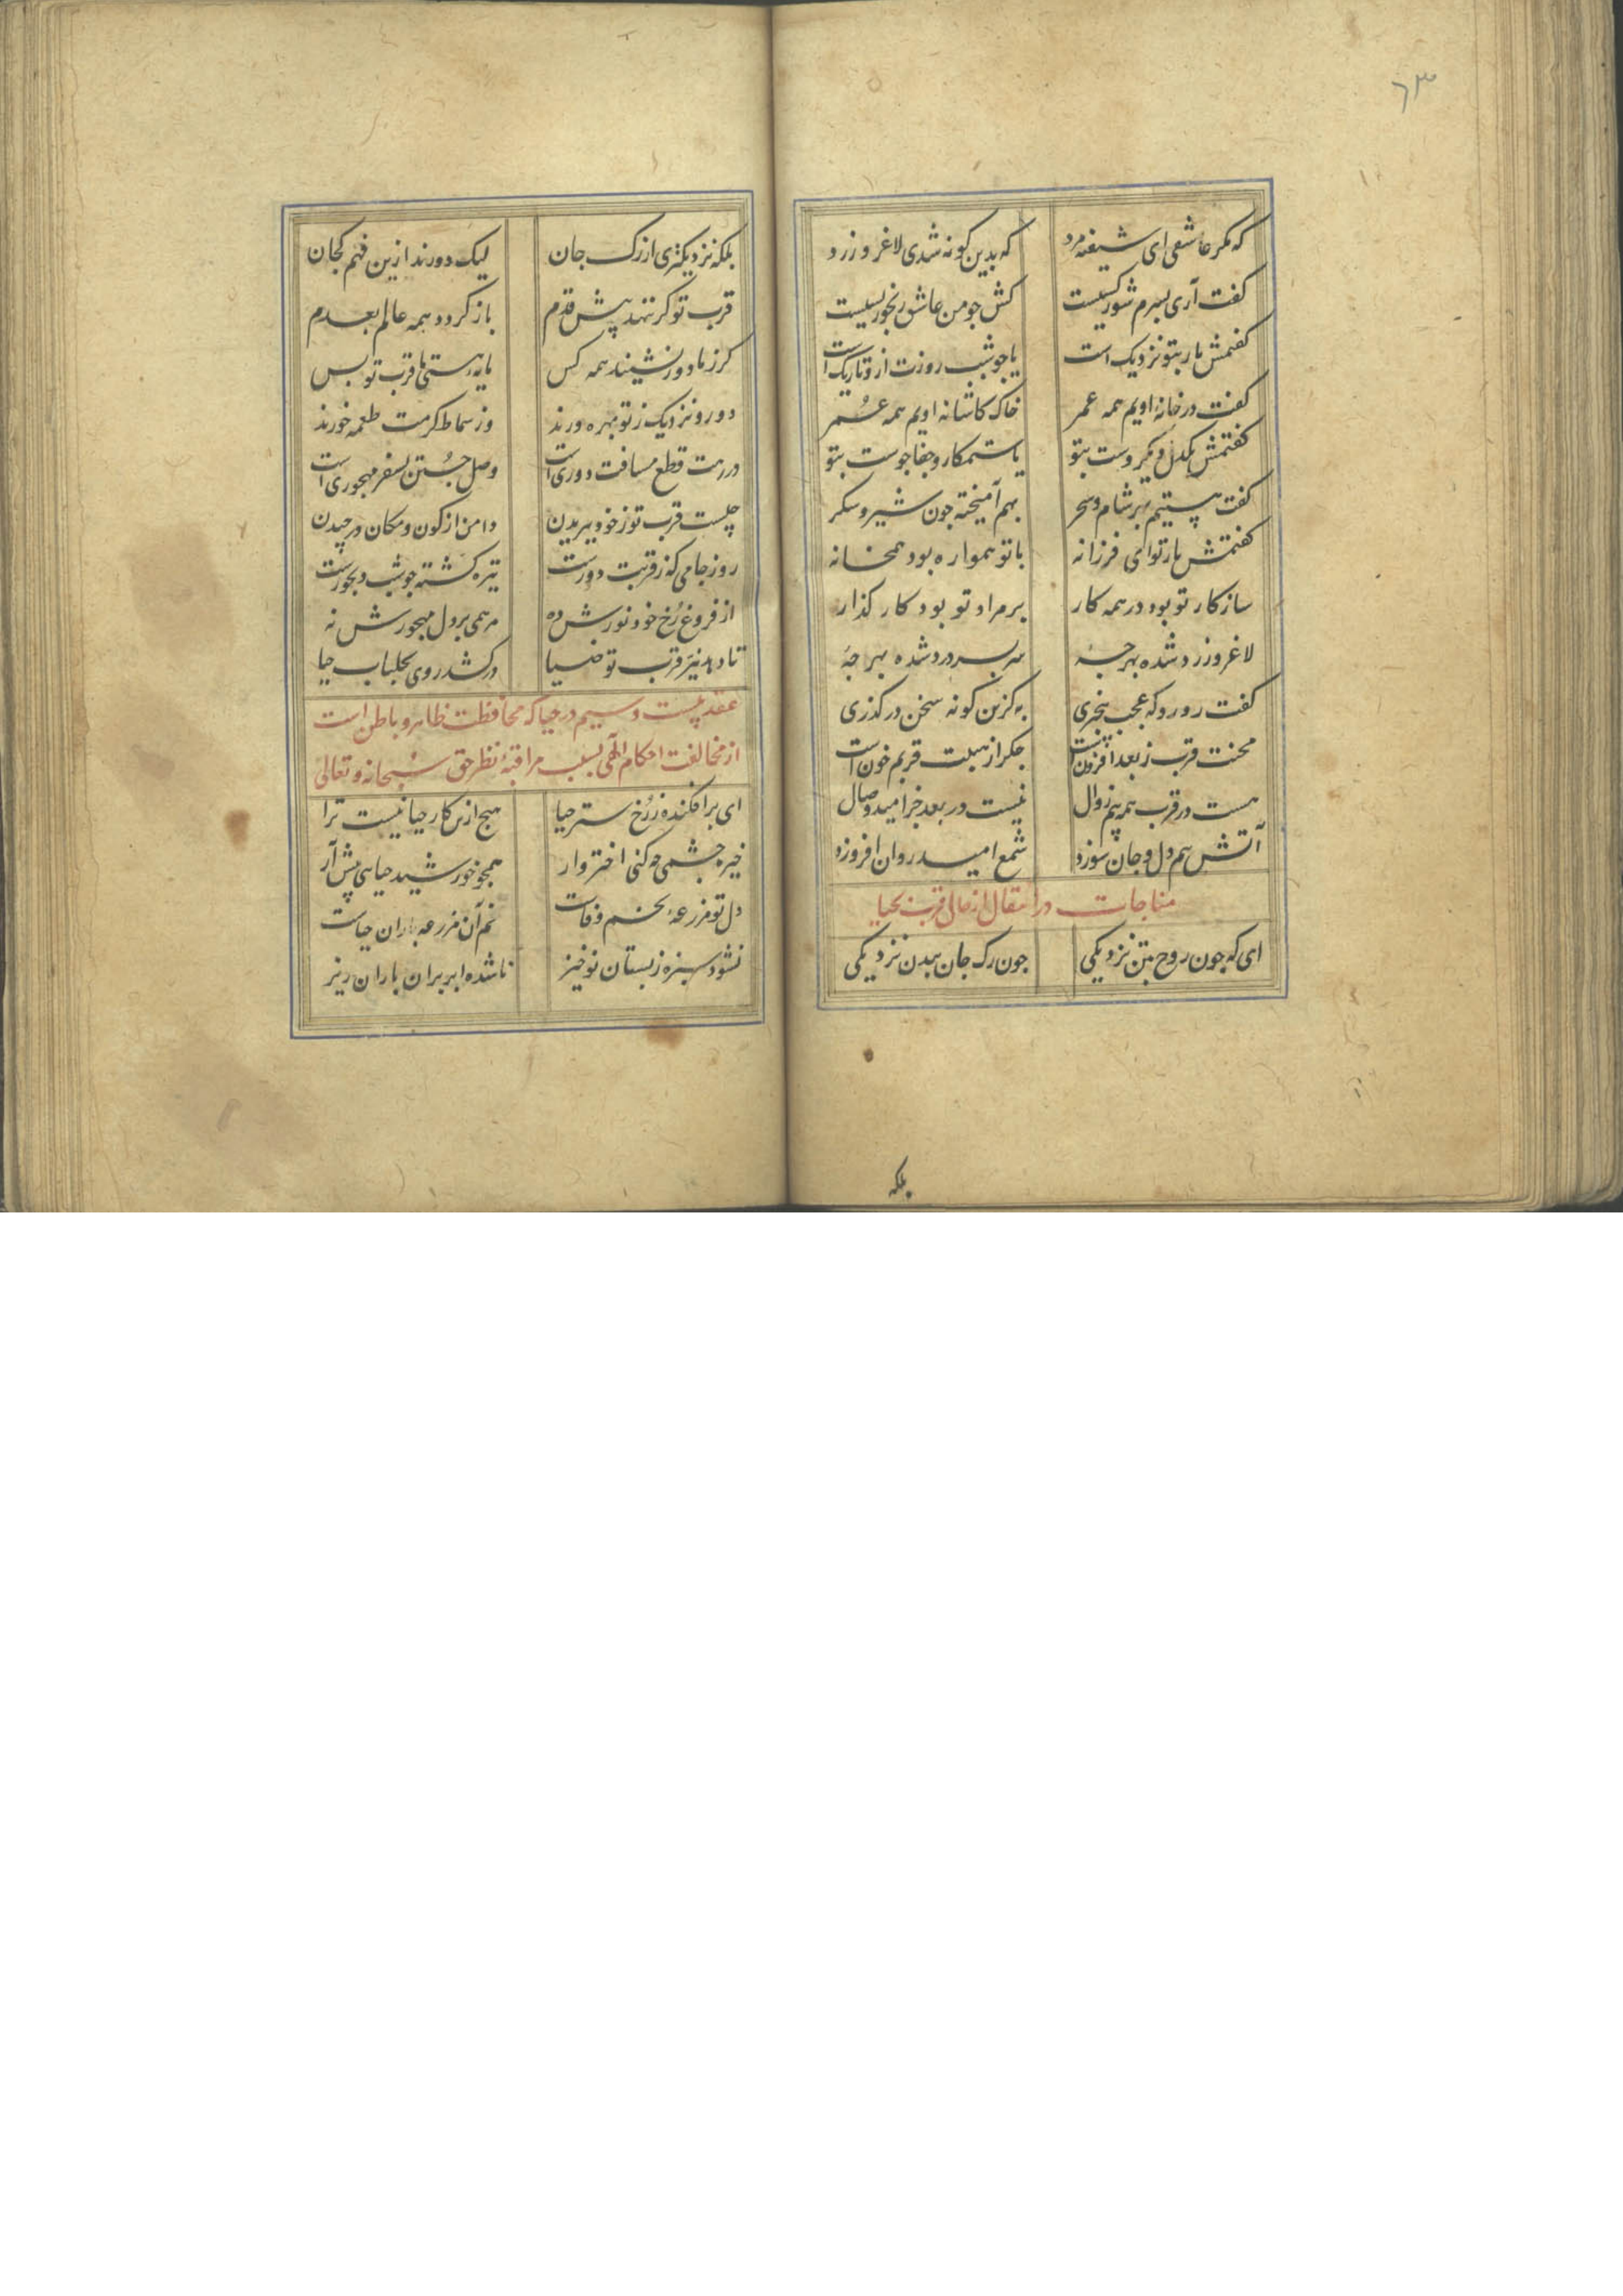 ٦٣
که مکر عاشقی ای شیفته مرد که بدین کونه شدی لاغر و زرد
کفت آری بسرم شور کسیست کش جو من عاشق رنجور بسیست
کفتمش یار بتو نزدیک است یا جو شب روزت ازو تاریک است
کفت در خانهٔ اویم همه عمر خاک کاشانه اویم همه عمر
کفتمش یکدل و یکروست بتو یا ستمکار و جفاجوست بتو
کفت هستیم بهر شام و سحر بهم آمیخته جون شیر و سکر
کفتمش یار تو ای فرزانه با تو همواره بود همخانه
سازکار تو بود در همه کار بر مراد تو بود کار کذار
لاغر و زرد شده بهر جهٔ سربسر درد شده بهر جهٔ
کفت رو رو که عجب بیخبری به کزین کونه سخن درکذری
محنت قرب ز بعد افزونست جکر از هیبت قربم خون است
هست در قرب همه بیم زوال نیست در بعد جز امید وصال
آتش بیم دل و جان سوزد شمع امید روان افروزد
مناجات در انتقال از حال قرب بحیا
ای که جون روح بتن نزدیکی جون رک جان ببدن نزدیکی
بلکه
بلکه نزدیکتری از رک جان لیک دورند ازین فهم کجان
قرب تو کر ننهد پیش قدم باز کردد همه عالم بعدم
کرز ما دور نشینند همه کس مایه هستی ما قرب تو بس
دور و نزدیک ز تو بهره ورند وز سماط کرمت طعمه خورند
در رهت قطع مسافت دوری است وصل جستن بسفر مهجوری است
چیست قرب تو ز خود ببریدن دامن از کون و مکان درچیدن
روز جامی که ز قربت دورست تیره کشته جو شب دیجورست
از فروغ رخ خود نورش ده مرهمی بر دل مهجورش نه
تا دهد نیر قرب تو ضیا درکشد روی بجلباب حیا
عقد بیست و سیم در حیا که محافظت ظاهر و باطن است
از مخالفت احکام الهی بسبب مراقبهٔ نظر حق سبحانه و تعالی
ای برافکنده ز رخ ستر حیا هیج ازین کار حیا نیست ترا
خیره چشمی چه کنی اختروار همجو خورشید حیایی پیش آر
دل تو مزرعهٔ تخم وفات نم آن مزرعه باران حیات
نشود سبزه ز بستان نوخیز ناشده ابر بران باران ریز